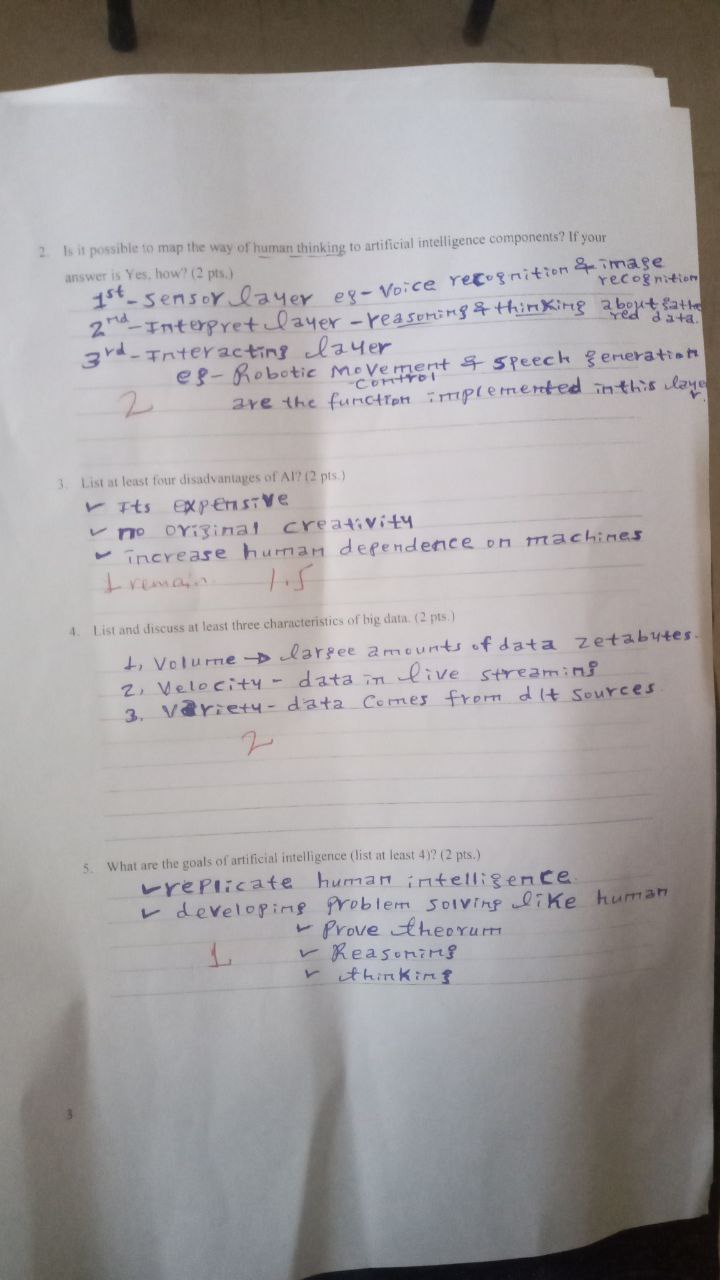 2. Is it possible to map the way of human thinking to artificial intelligence components? If your
answer is Yes, how? (2 pts.)
1st - Sensor layer eg - Voice recognition & image
recognition
2nd - Interpret layer - reasoning & thinking about gathe
red data.
3rd - Interacting layer
eg - Robotic Movement & speech generation
control
are the function implemented in this laye
r.
2
3. List at least four disadvantages of AI? (2 pts.)
✓ Its expensive
✓ no original creativity
✓ increase human dependence on machines
1 remain 1.5
4. List and discuss at least three characteristics of big data. (2 pts.)
1, Volume → largee amounts of data zetabytes.
2, Velocity - data in live streaming
3. Variety - data Comes from d/t sources.
2
5. What are the goals of artificial intelligence (list at least 4)? (2 pts.)
✓ replicate human intelligence.
✓ developing problem solving like human
✓ Prove theorum
1 ✓ Reasoning
✓ thinking
3